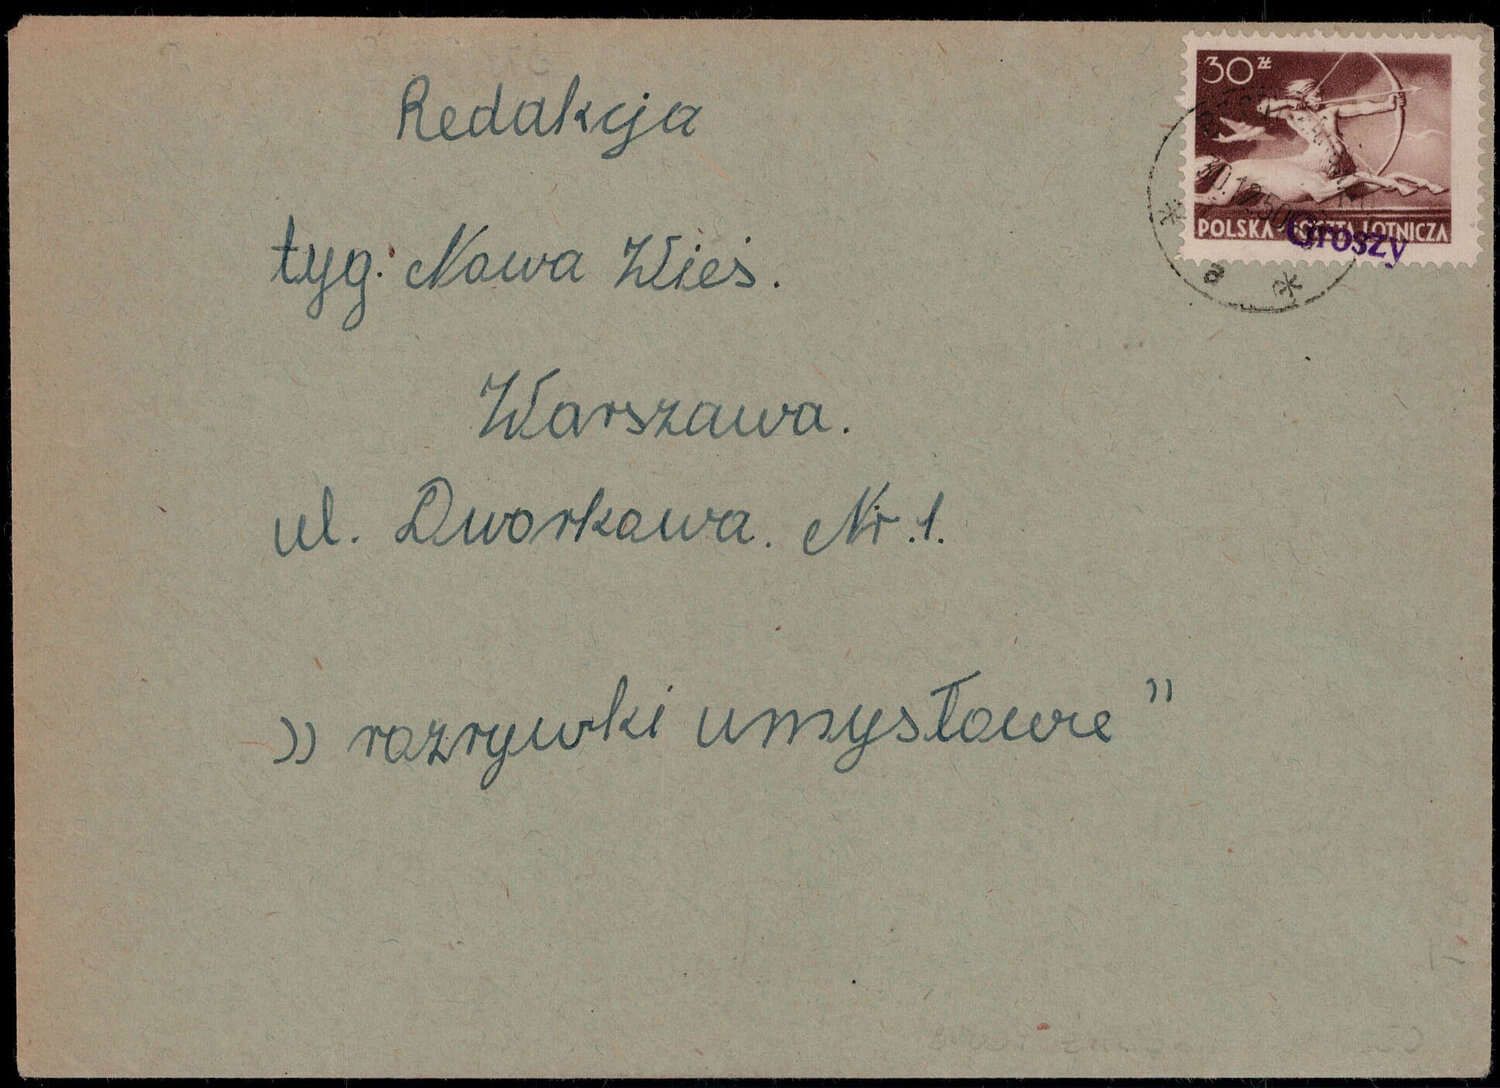 30 zł
POLSKA POCZTA LOTNICZA
Groszy
a
Redakcja
tyg. Nowa Wieś.
Warszawa.
ul. Dworkowa. Nr. 1.
„ rozrywki umysłowe ”